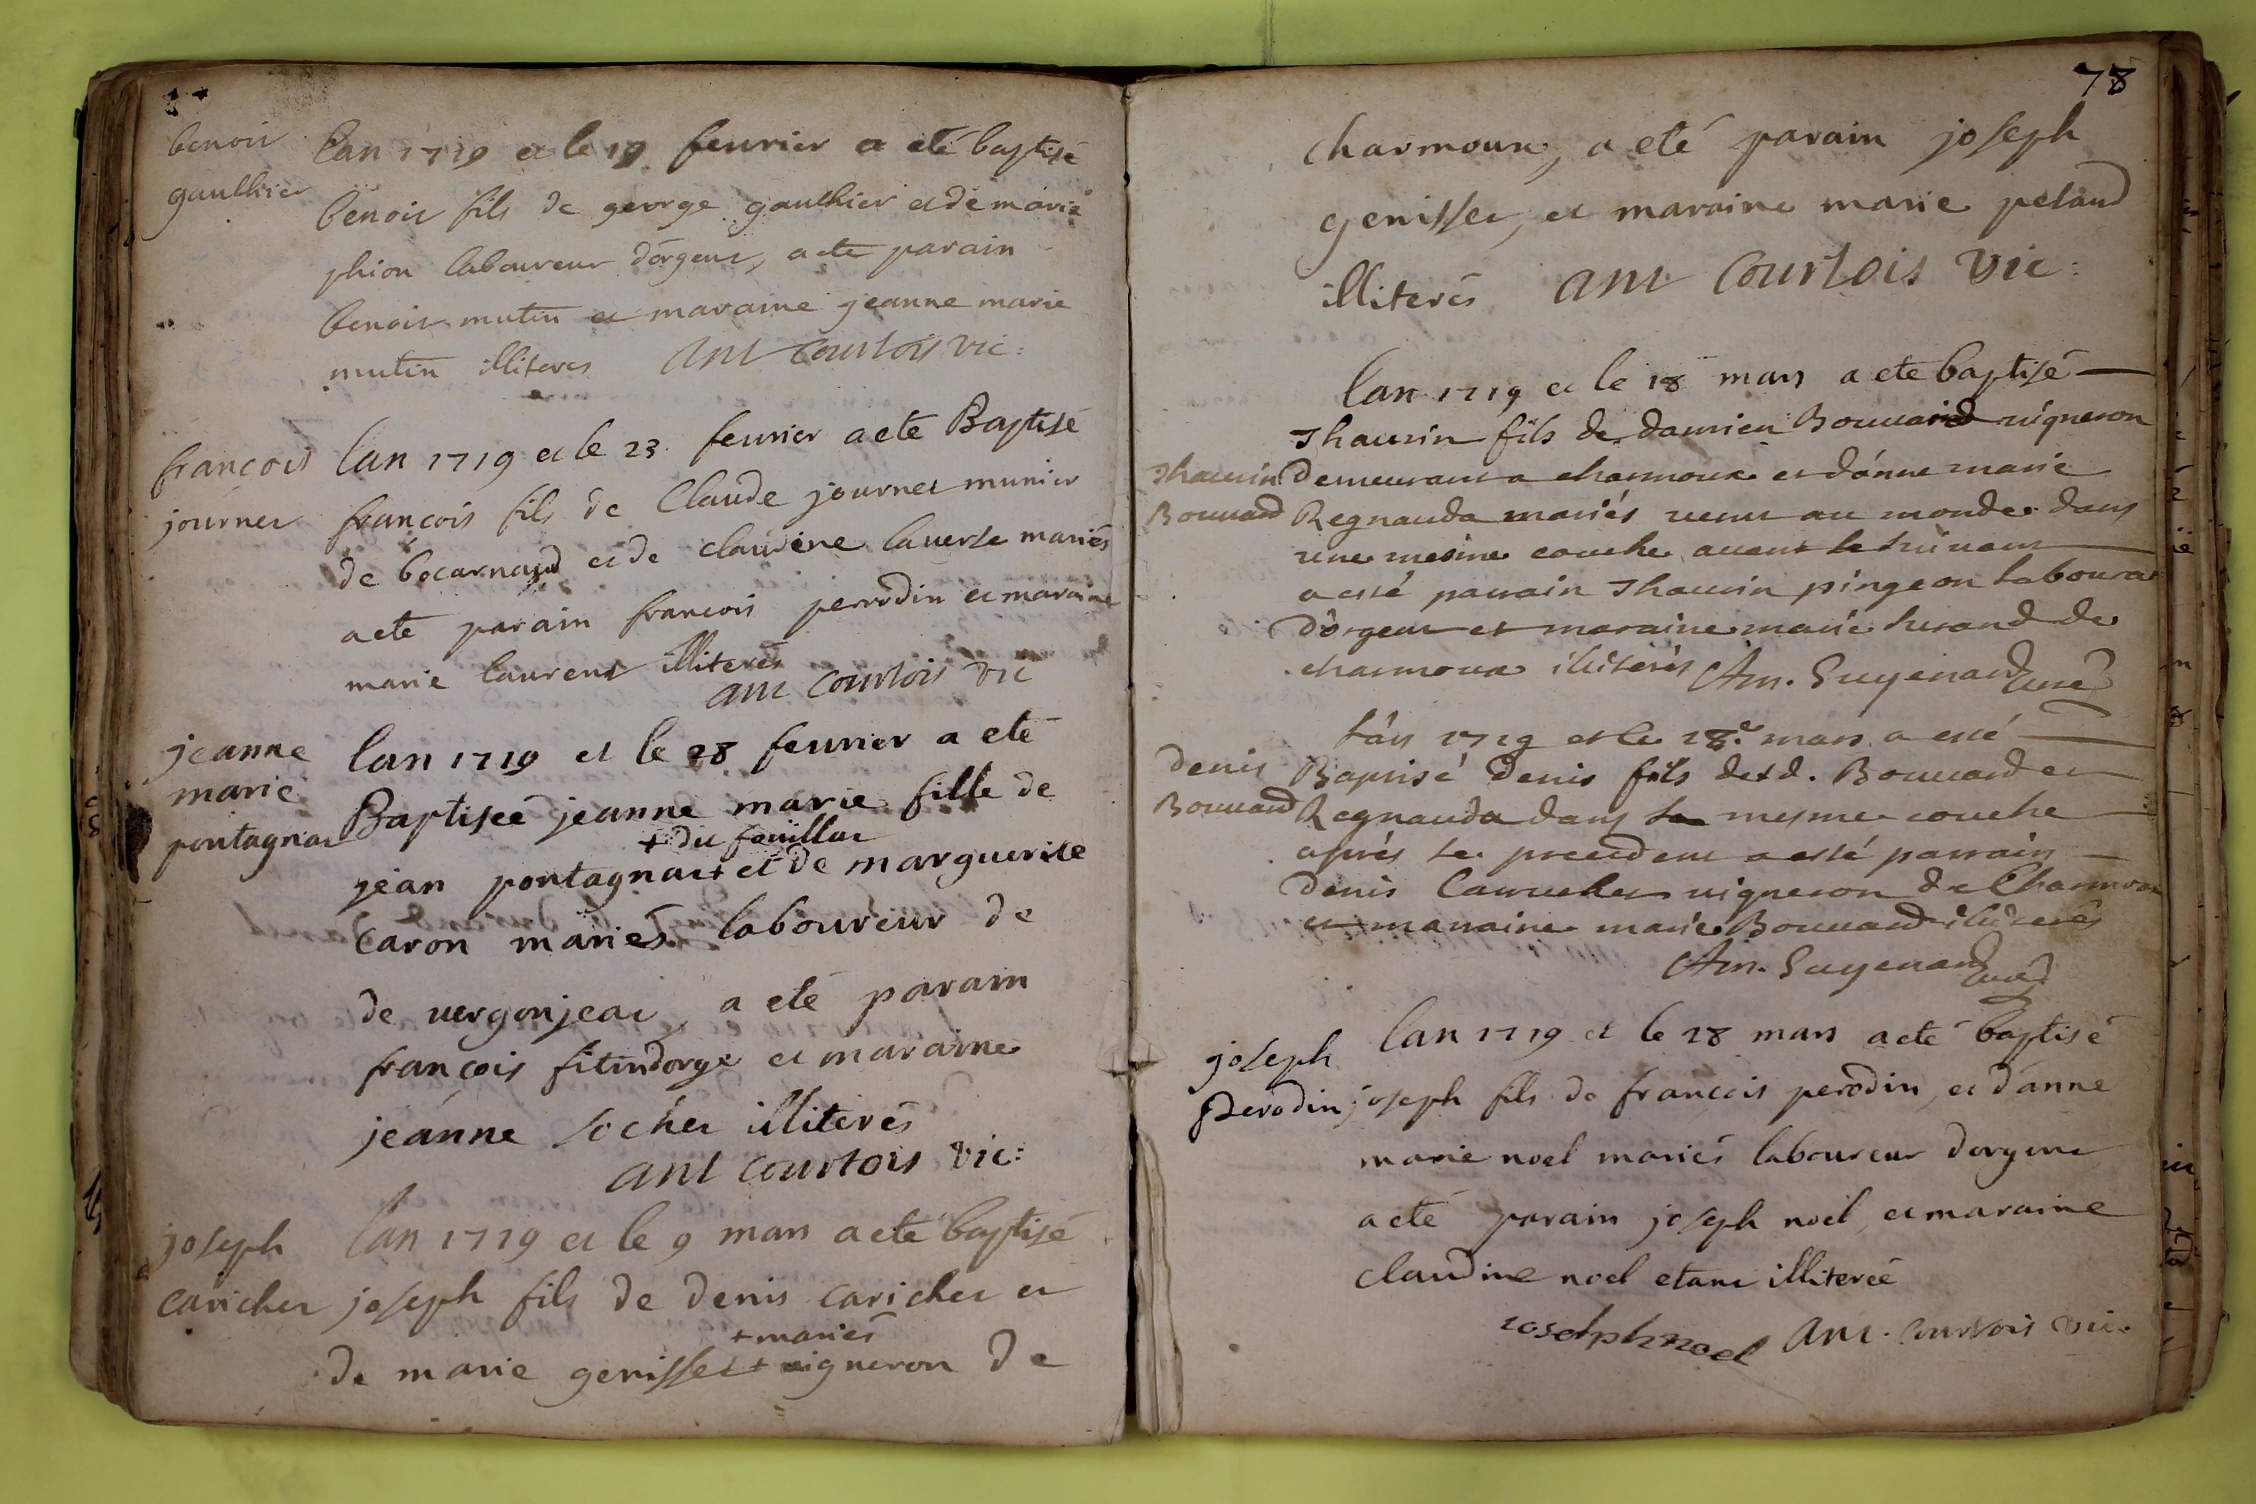 benoit
gauthier
lan 1719 et le 19 feurier a eté baptisé
benoit fils de george gauthier et de marie
phion laboureur dorgent, a ete parain
benoit mutin et maraine jeanne marie
mutin illiteres ant courtois vic:
francois
journet
lan 1719 et le 23 feurier a ete Baptisé
françois fils de Claude journet munier
de bocarnaud et de claudine lauerse mariés
a eté parain francois perrodin et maraine
marie laurent illiterés
ant courtois vic
jeanne
marie
pontagnat
lan 1719 et le 28 feurier a eté
Baptiseé jeanne marie fille de
+ du fouillat
jean pontagnat + et de marguerite
caron mariés laboureur de
de vergonjeat, a eté parain
françois fitindorge et maraine
jeanne sochet illiterés
ant courtois vic:
joseph
carichet
lan 1719 et le 9 mars a eté baptisé
joseph fils de denis carichet et
+ mariés
de marie genisset + vigneron de
78
charmoux, a eté parain joseph
genisset, et maraine marie petaud
illiterés ant courtois vic:
lan 1719 et le 18 mars a ete baptisé
Thaurin
Bouuard
Thaurin fils de damien Bouuard uigneron
demeurant a charmoux et danne marie
Regnauda mariés uenu au monde dans
une mesme couche auant le suiuant
a esté parrain Thaurin pingeon labourar
d'orgent et maraine marie herand de
charmoux illiterés Am. Guyenard curé
Denis
Bouuard
lan 1719 et le 18e mars a esté
Baptisé Denis fils desd. Bouuard et
Regnauda dans la mesme couche
aprés le precedent a esté parrain
Denis uigneron de Charmoux
et marraine marie Bouuard illiterés
Am. Guyenard curé
joseph
Perodin
lan 1719 et le 28 mars a eté baptisé
joseph fils de francois perodin, et d'anne
marie noel mariés laboureur dorgent
a eté parain joseph noel, et maraine
claudine noel etant illitereé
ioseph noel ant. courtois vic.